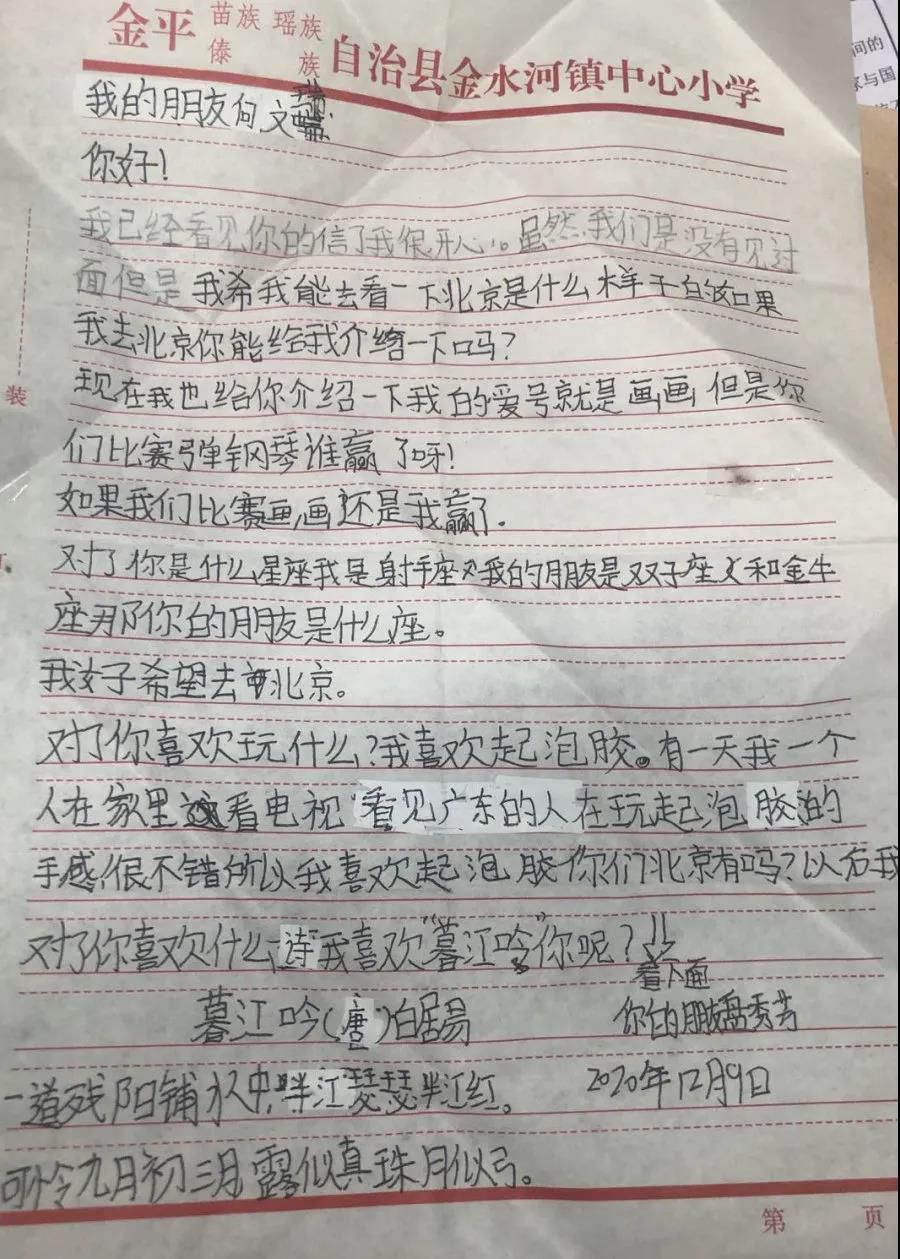 金平苗族瑶族傣族自治县金水河镇中心小学
我的朋友何文
你好!
我已经看见你的信了我很开心。虽然我们是没有见过
面但是我希我能去看一下北京是什么样子的如果
我去北京你能给我介绍一下吗?
现在我也给你介绍一下我的爱号就是画画但是你
们比赛弹钢琴谁赢了呀!
如果我们比赛画画还是我赢了.
对了你是什么星座我是射手座我的朋友是双子座和金牛
座那你的朋友是什么座。
我好子希望去北京。
对了你喜欢玩什么?我喜欢起泡胶。有一天我一个
人在家里看电视看见广东的人在玩起泡胶的
手感很不错所以我喜欢起泡胶你们北京有吗?以后我
对了你喜欢什么诗我喜欢"暮江吟"你呢?
看下面
暮江吟(唐)白居易
你的朋友盘秀芳
一道残阳铺水中,半江瑟瑟半江红。
2020年12月9日
可怜九月初三月露似真珠月似弓。
装
间的
家与国
第 页